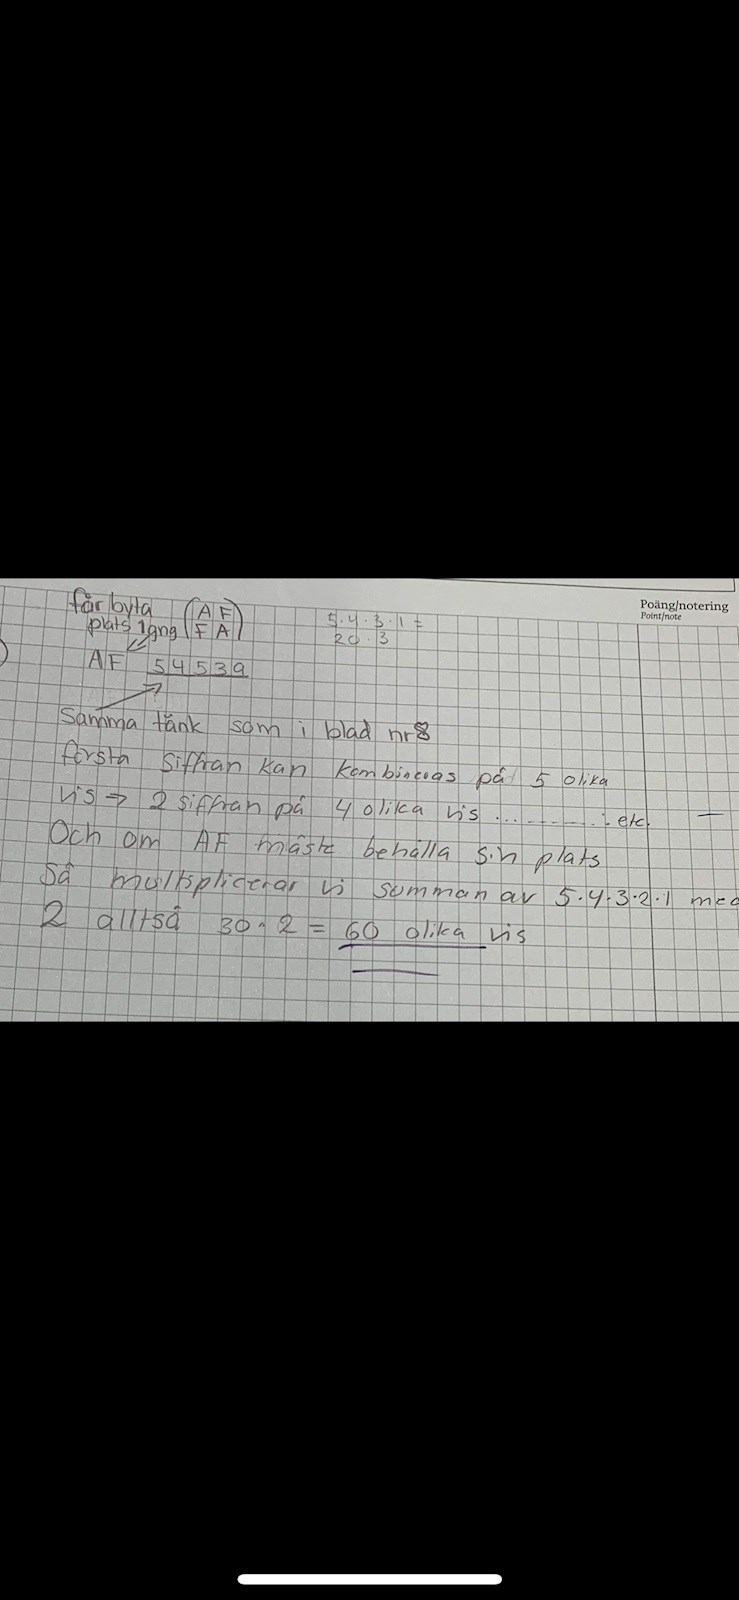 får byta (A F
plats 1gng F A)
5.4.3.1 =
20.3
Poäng/notering
Point/note
AF 54539
Samma tänk som i blad nr8
första siffran kan kombineras på 5 olika
vis → 2 siffran på 4 olika vis ............ etc.
Och om AF måste behålla sin plats
Så multiplicerar vi summan av 5.4.3.2.1 med
2 alltså 30.2 = 60 olika vis